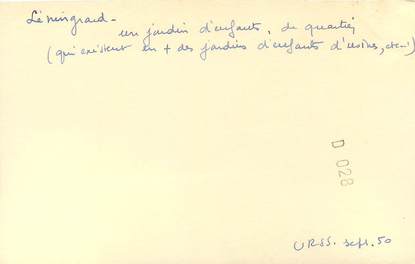 Léningrad -
un jardin d'enfants, de quartier
(qui existent en + des jardins d'enfants d'usines, etc...)
D 028
URSS. sept. 50